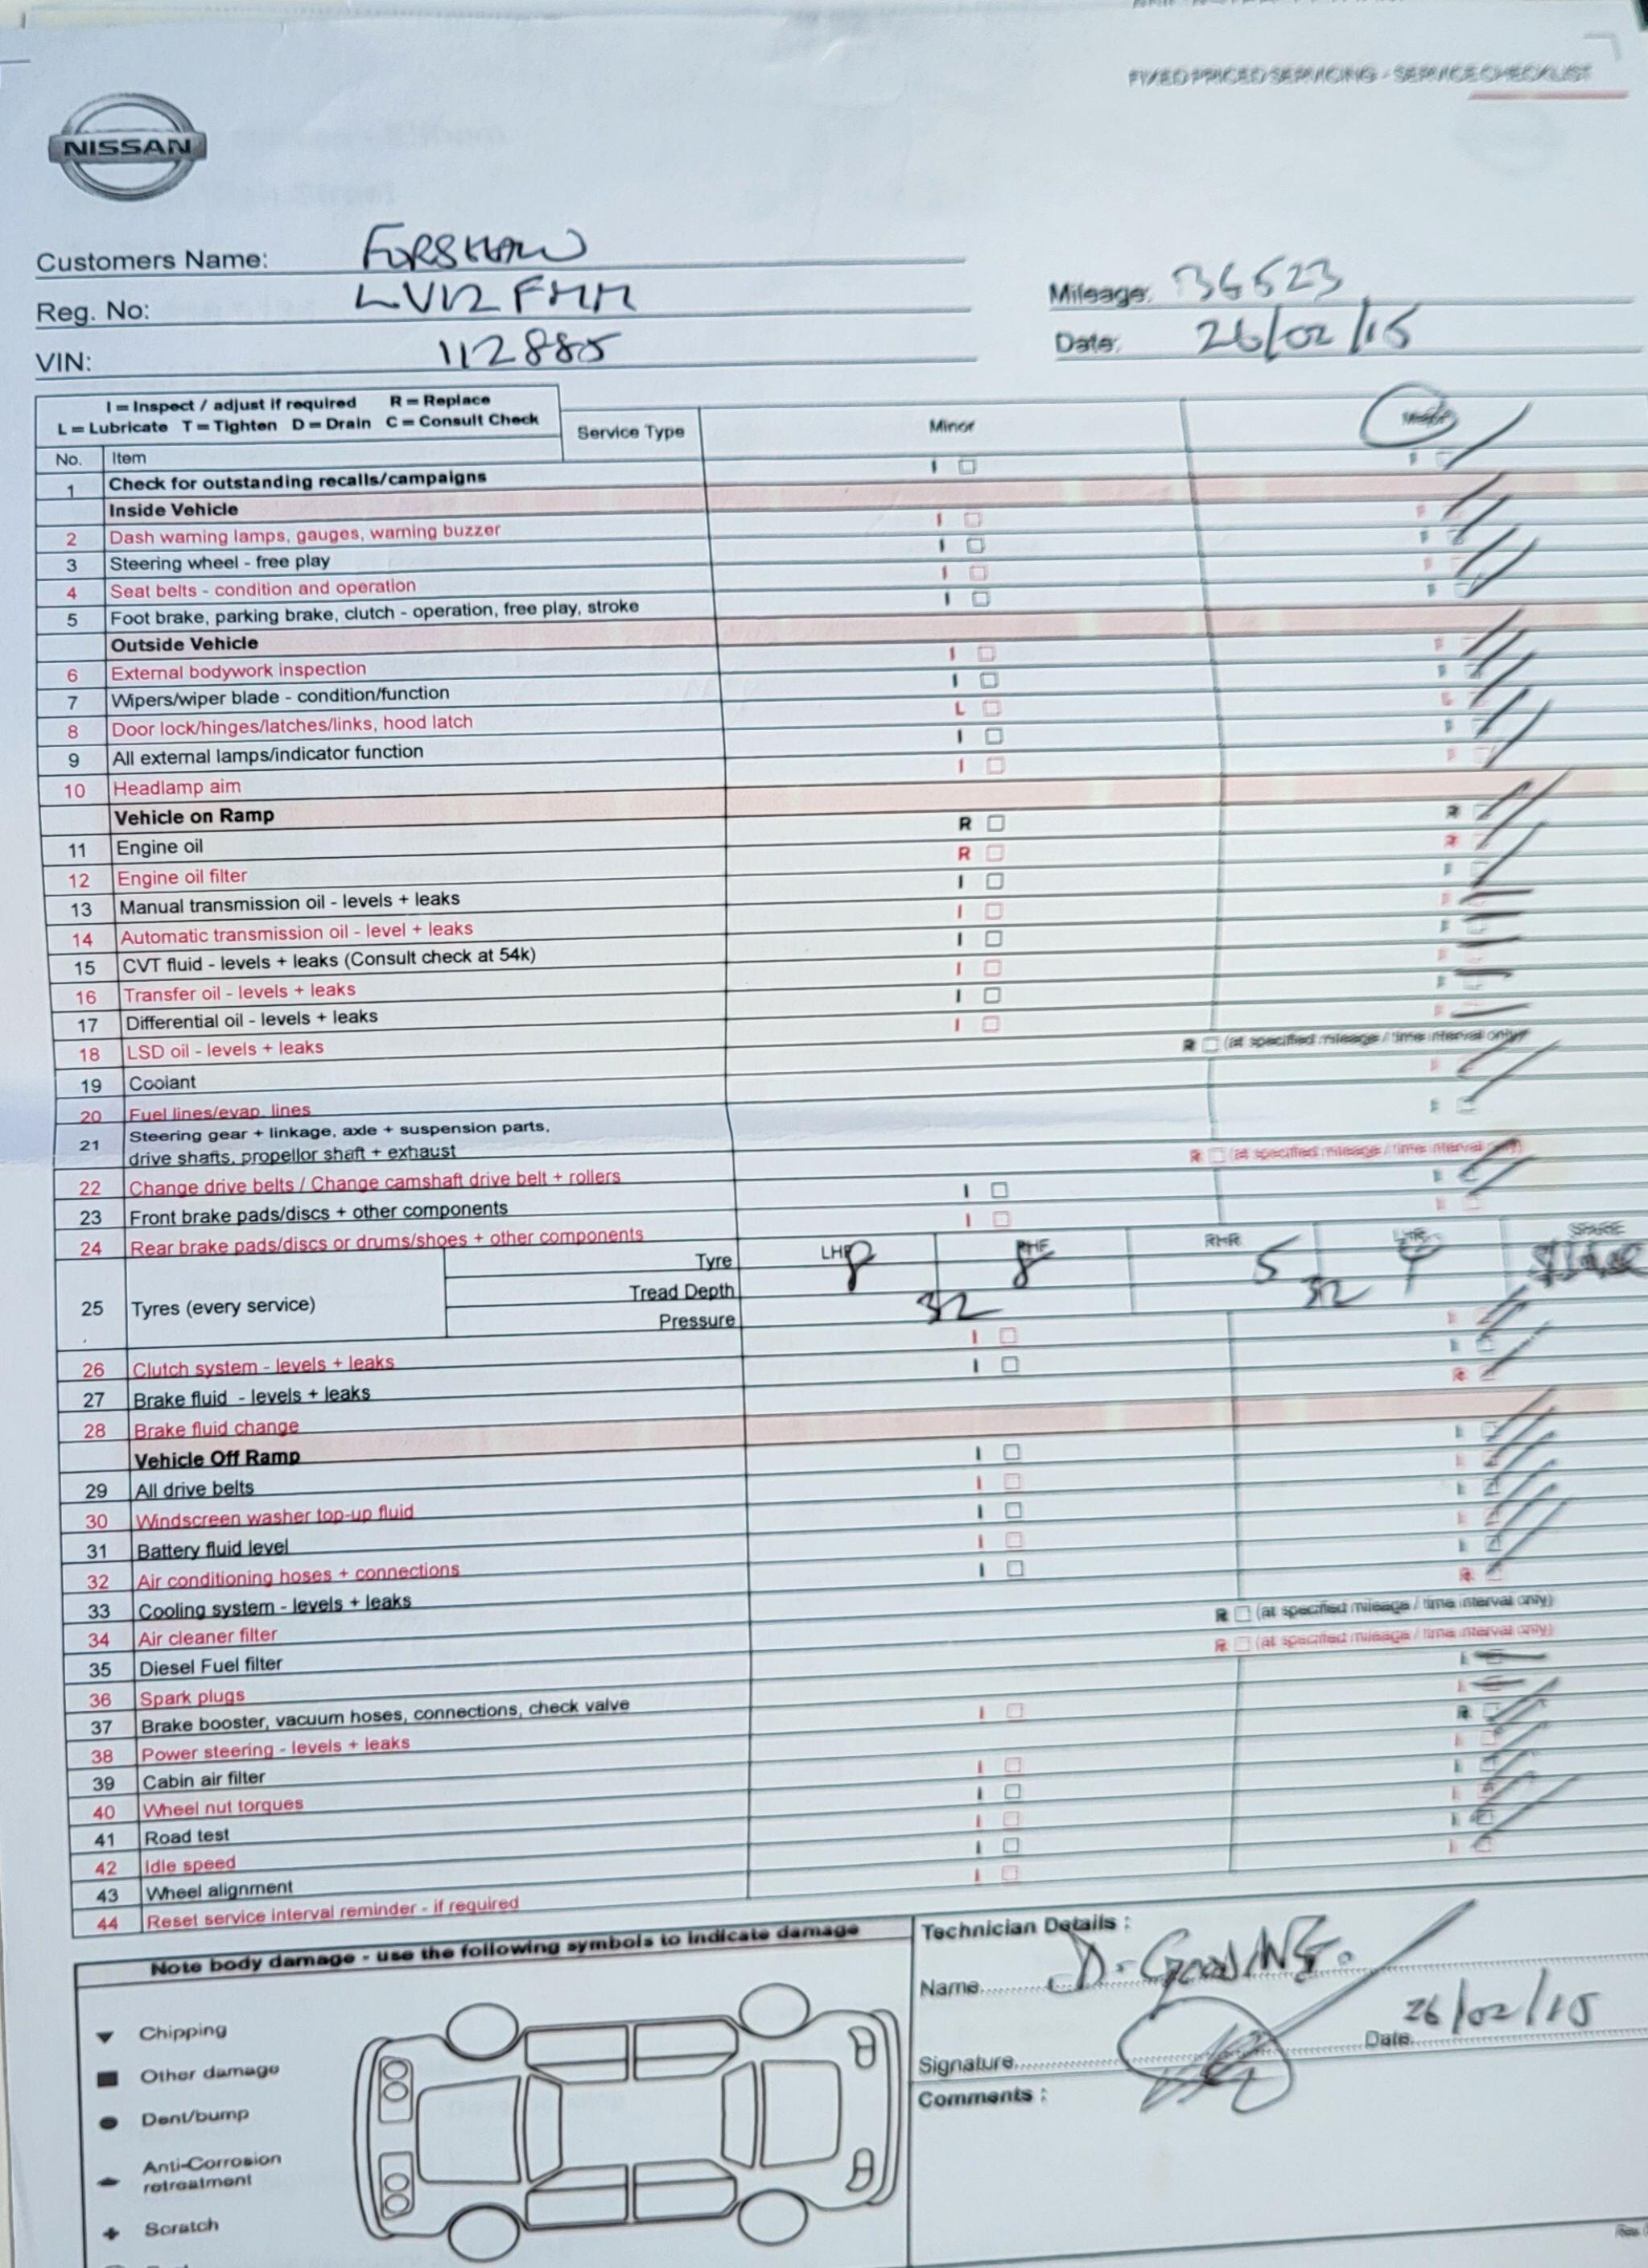 FIXED PRICED SERVICING - SERVICE CHECKLIST
NISSAN
Customers Name: FORSHAW
Reg. No: LV12 FMM
Mileage: 36523
VIN: 112885
Date: 26/02/15
I = Inspect / adjust if required R = Replace
L = Lubricate T = Tighten D = Drain C = Consult Check
Service Type Minor Major
No. Item
1 Check for outstanding recalls/campaigns I I
Inside Vehicle
2 Dash warning lamps, gauges, warning buzzer I I
3 Steering wheel - free play I I
4 Seat belts - condition and operation I I
5 Foot brake, parking brake, clutch - operation, free play, stroke I I
Outside Vehicle
6 External bodywork inspection I I
7 Wipers/wiper blade - condition/function I I
8 Door lock/hinges/latches/links, hood latch L L
9 All external lamps/indicator function I I
10 Headlamp aim I I
Vehicle on Ramp
11 Engine oil R R
12 Engine oil filter R R
13 Manual transmission oil - levels + leaks I I
14 Automatic transmission oil - level + leaks I I
15 CVT fluid - levels + leaks (Consult check at 54k) I I
16 Transfer oil - levels + leaks I I
17 Differential oil - levels + leaks I I
18 LSD oil - levels + leaks I I
19 Coolant R (at specified mileage / time interval only)
20 Fuel lines/evap. lines I
21 Steering gear + linkage, axle + suspension parts,
drive shafts, propellor shaft + exhaust I
22 Change drive belts / Change camshaft drive belt + rollers R (at specified mileage / time interval only)
23 Front brake pads/discs + other components I I
24 Rear brake pads/discs or drums/shoes + other components I I
25 Tyres (every service)
Tyre LHF RHF RHR LHR SPARE
Tread Depth 8 8 5
Pressure 32 32
26 Clutch system - levels + leaks I I
27 Brake fluid - levels + leaks I I
28 Brake fluid change R
Vehicle Off Ramp
29 All drive belts I I
30 Windscreen washer top-up fluid I I
31 Battery fluid level I I
32 Air conditioning hoses + connections I I
33 Cooling system - levels + leaks I I
34 Air cleaner filter R
35 Diesel Fuel filter R (at specified mileage / time interval only)
36 Spark plugs R (at specified mileage / time interval only)
37 Brake booster, vacuum hoses, connections, check valve I
38 Power steering - levels + leaks I I
39 Cabin air filter R
40 Wheel nut torques I I
41 Road test I I
42 Idle speed I I
43 Wheel alignment I I
44 Reset service interval reminder - if required I I
Note body damage - use the following symbols to indicate damage
Chipping
Other damage
Dent/bump
Anti-Corrosion
retreatment
Scratch
Technician Details :
Name D. GOODING.
Signature Date 26/02/15
Comments :